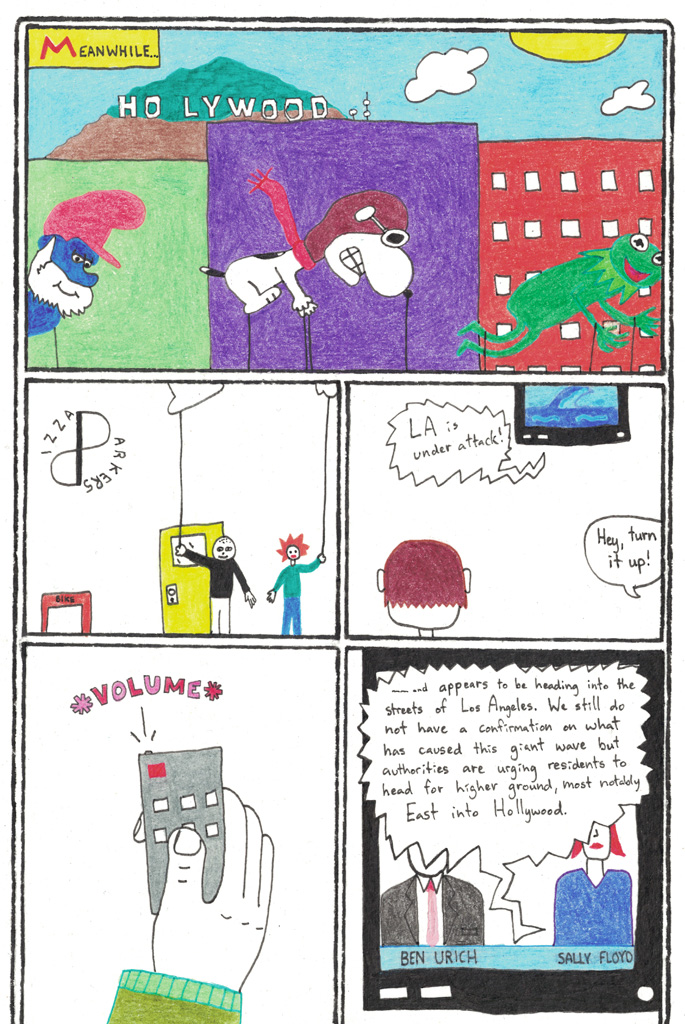 MEANWHILE...
HO LYWOOD
PIZZA
PARKERS
BIKE
LA is
under attack!
Hey, turn
it up!
*VOLUME*
...and appears to be heading into the
streets of Los Angeles. We still do
not have a confirmation on what
has caused this giant wave but
authorities are urging residents to
head for higher ground, most notably
East into Hollywood.
BEN URICH
SALLY FLOYD